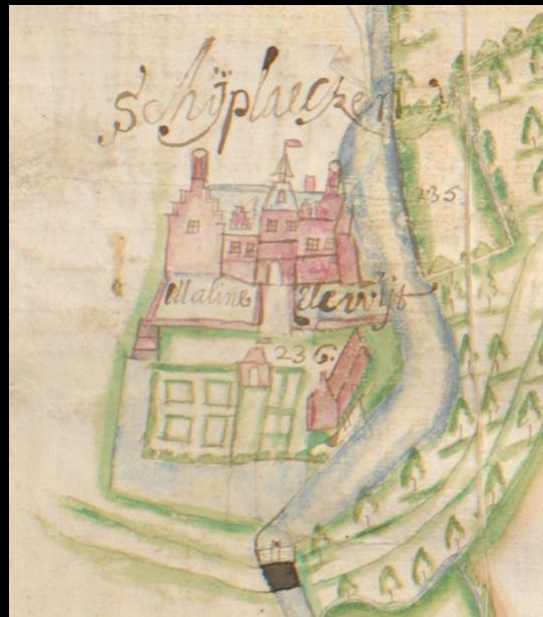 Schÿplaecken
235
Maline Uewijt
236.